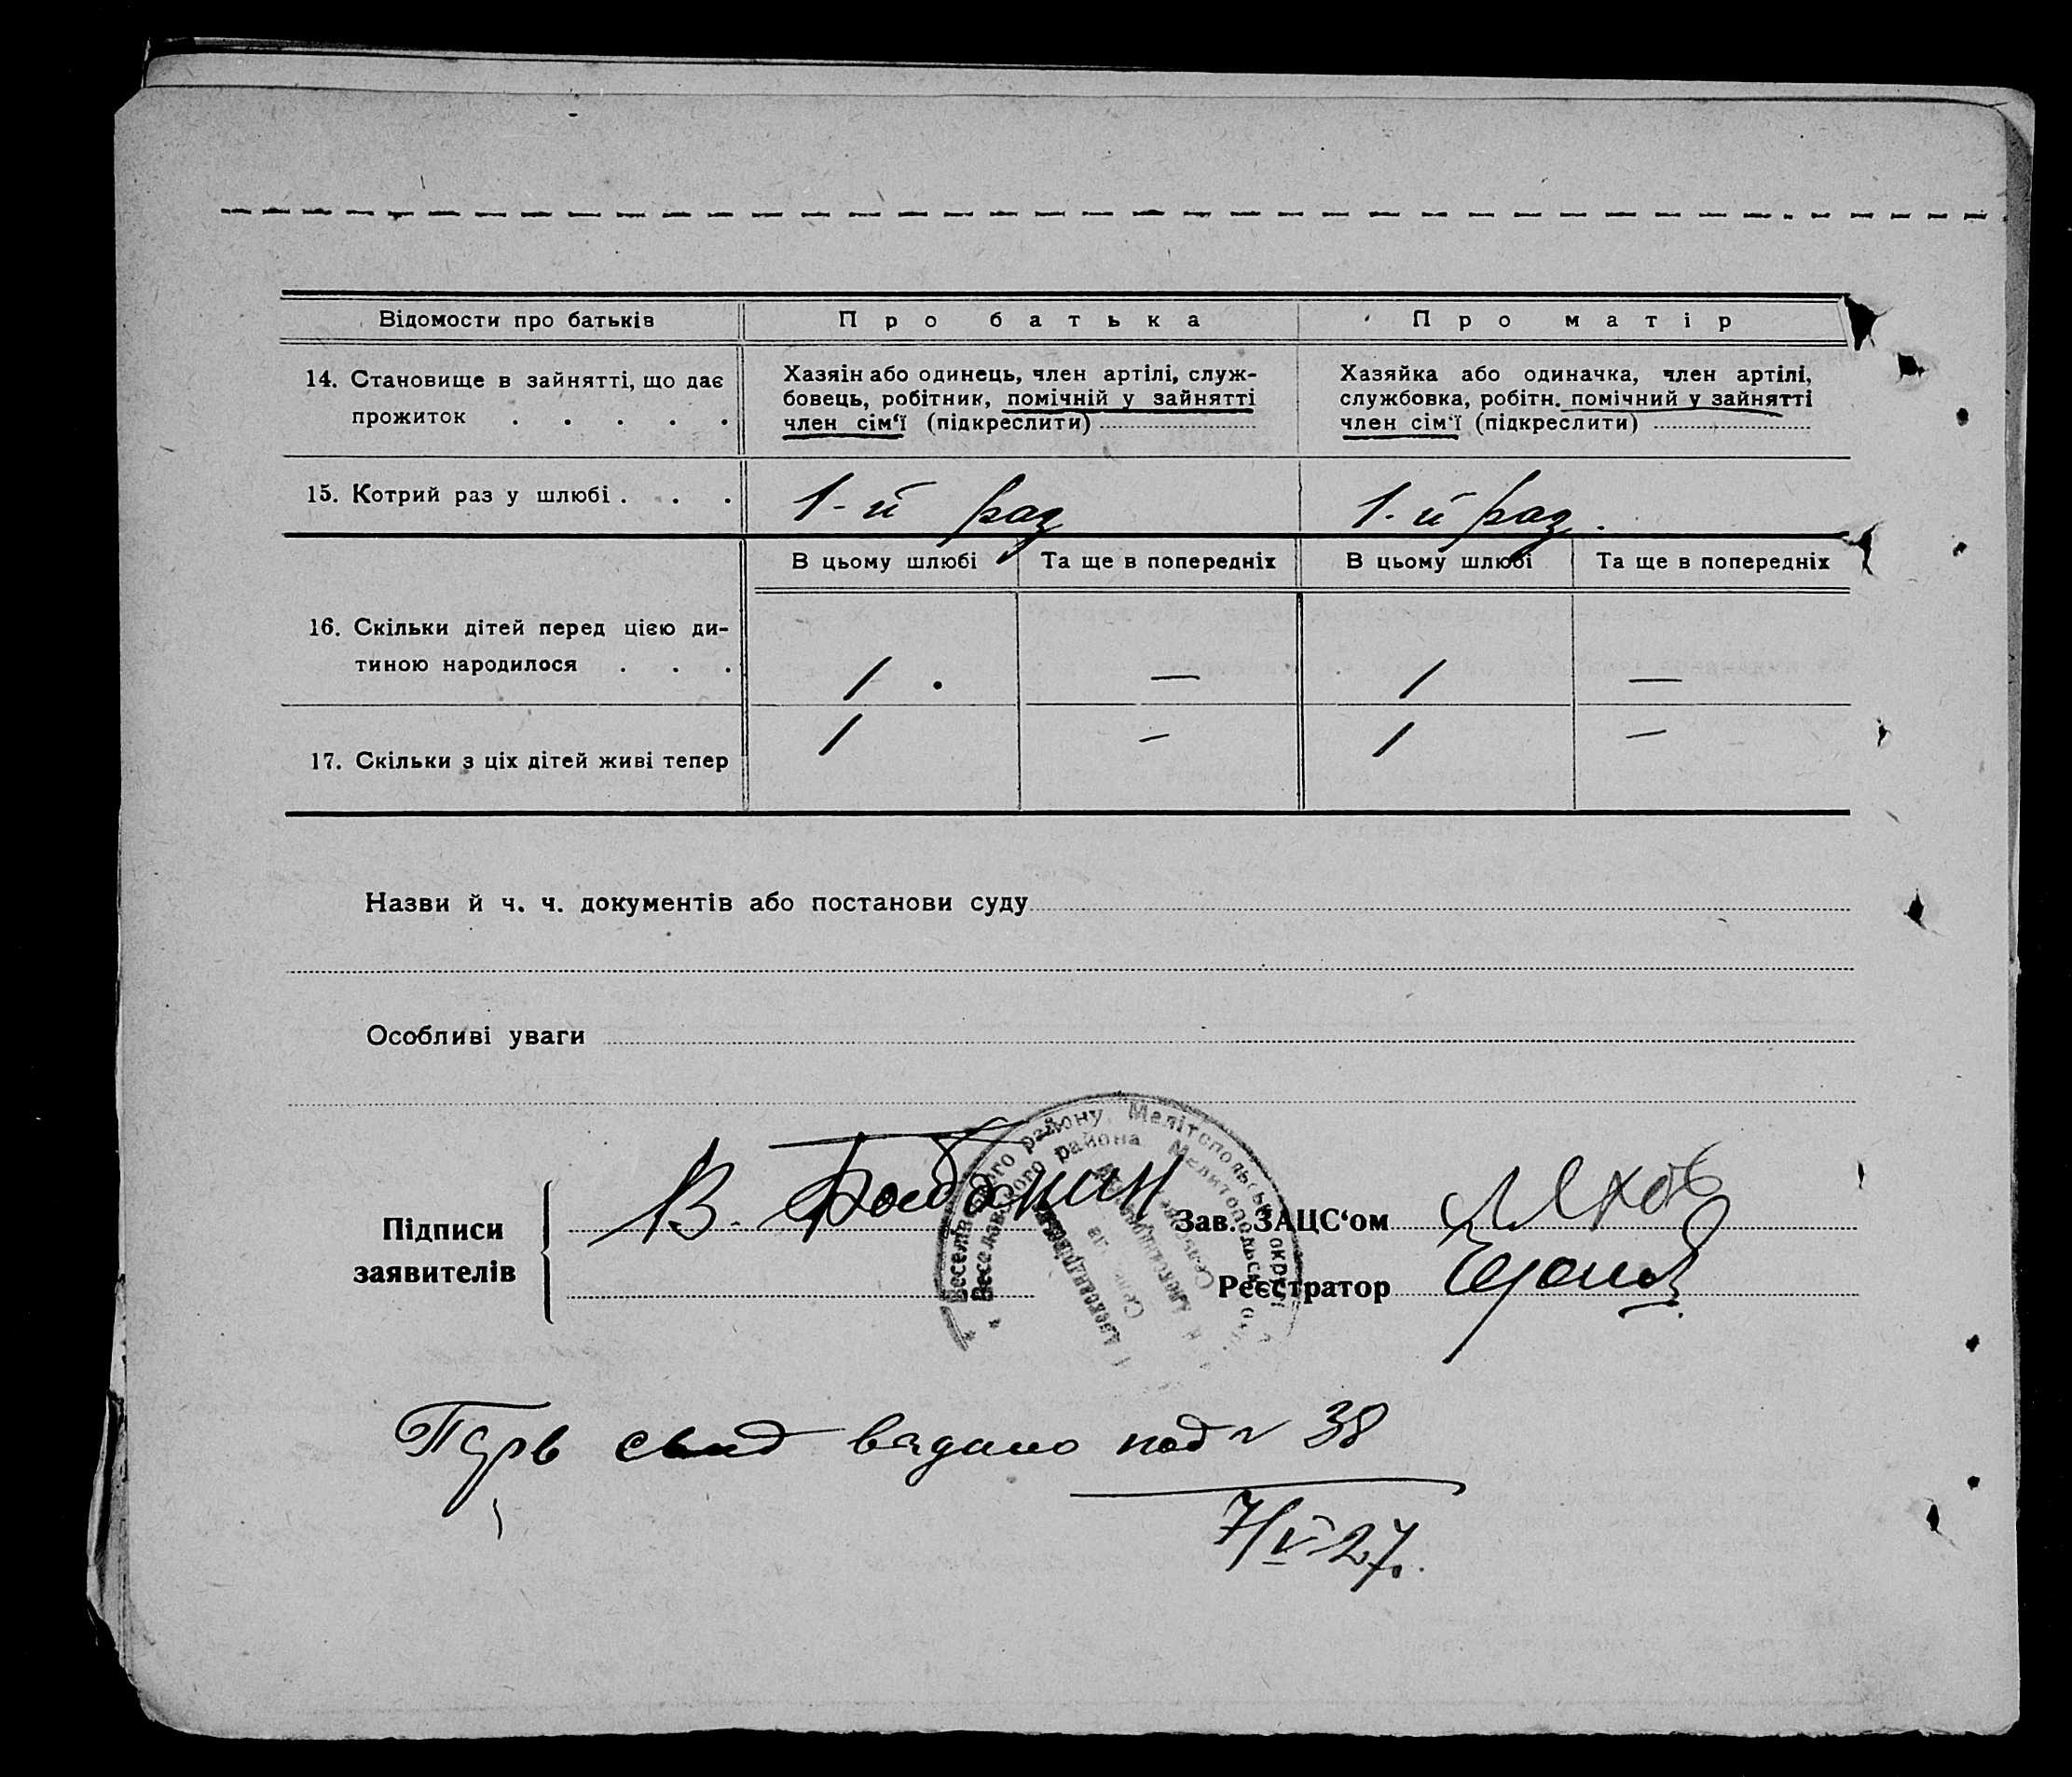 Відомости про батьків
Про батька
Про матір
14. Становище в зайнятті, що дає
прожиток . . . . .
Хазяін або одинець, член артілі, служ-
бовець, робітник, помічній у зайнятті
член сім‘ї (підкреслити)
Хазяйка або одиначка, член артілі,
службовка, робітн. помічний у зайнятті
член сім‘ї (підкреслити)
15. Котрий раз у шлюбі . . .
1-й раз
1-й раз.
В цьому шлюбі
Та ще в попередніх
В цьому шлюбі
Та ще в попередніх
16. Скільки дітей перед цією ди-
тиною народилося . . .
1 .
—
1
—
17. Скільки з ціх дітей живі тепер
1
—
1
—
Назви й ч. ч. документів або постанови суду
Особливі уваги
Веселівського району, Мелітопольськ. округ
Веселовского района Мелитопольск.
Підписи
заявителів
В.
Зав. ЗАЦС‘ом
Реєстратор
свид видано под № 38
7/V 27.